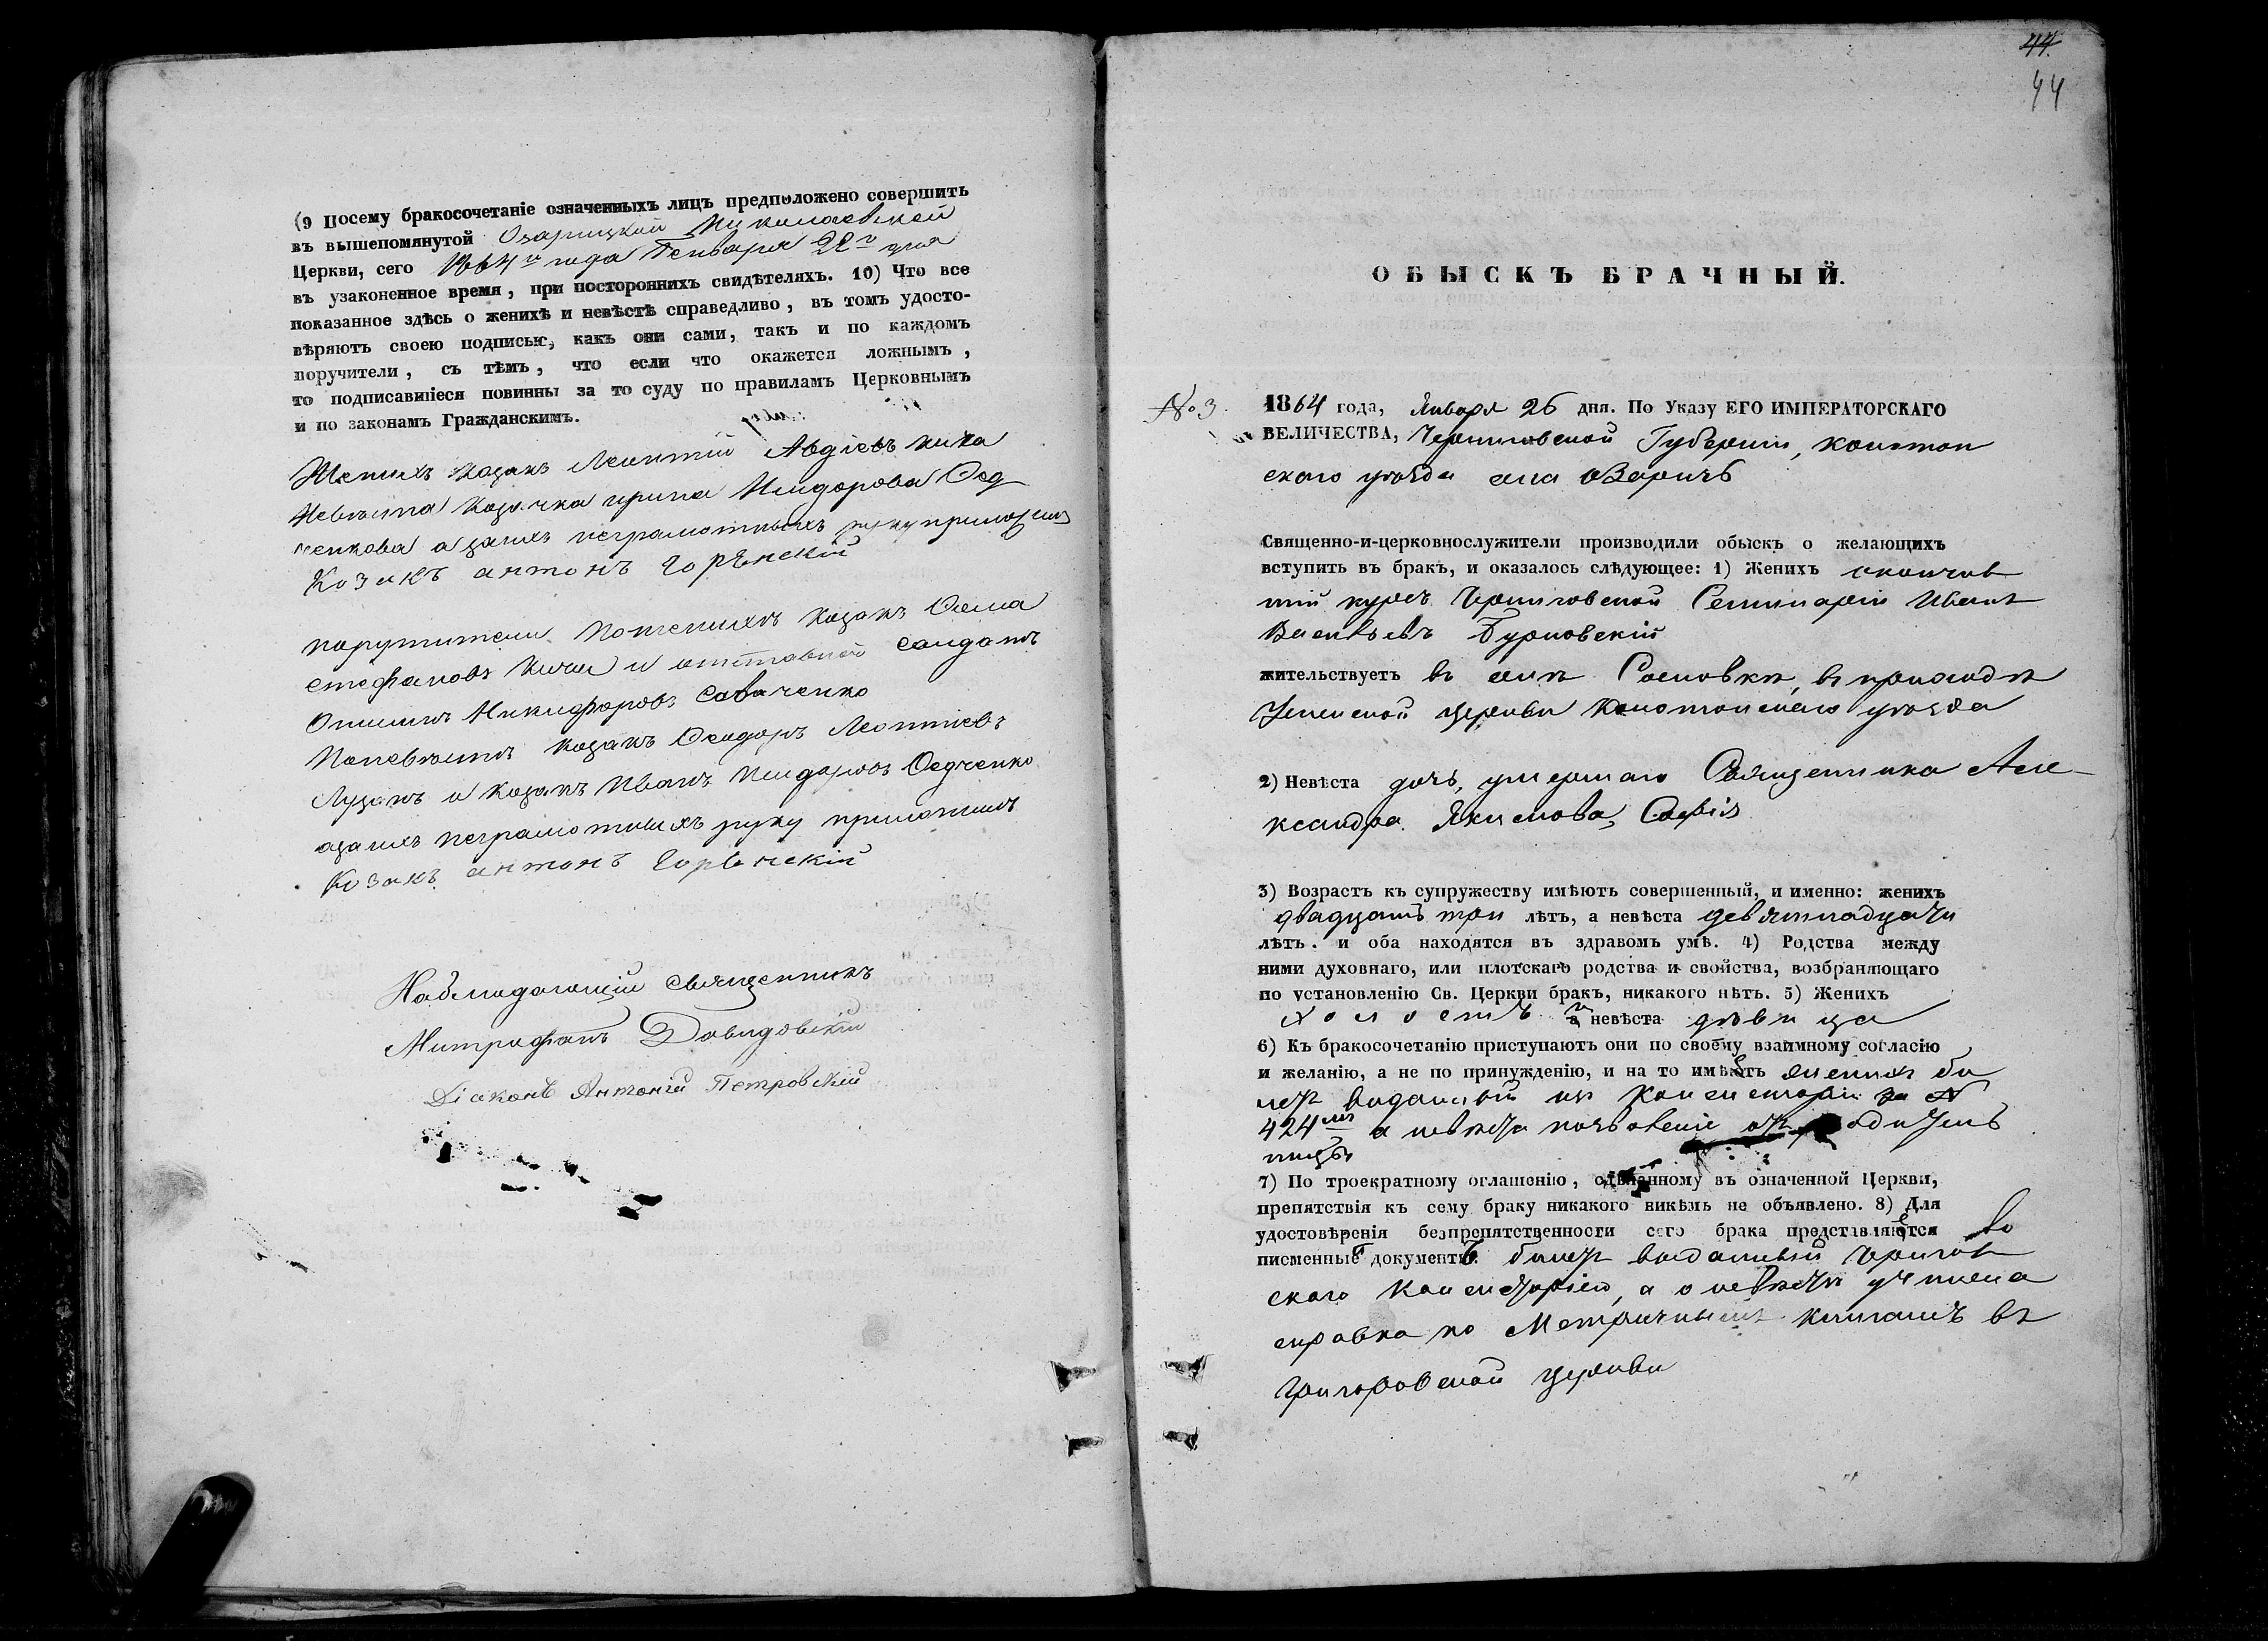 (9 Посему бракосочетаніе означенныхъ лицъ предположено совершить
въ вышепомянутой Озарицкой Николаевской
Церкви, сего 1864го года Генваря 22го дня
въ узаконенное время, при постороннихъ свидѣтеляхъ. 10) Что все
показанное здѣсь о женихѣ и невѣстѣ справедливо, въ томъ удосто-
вѣряютъ своею подписью, какъ они сами, такъ и по каждомъ
поручители, съ тѣмъ, что если что окажется ложнымъ,
то подписавшіеся повинны за то суду по правиламъ Церковнымъ
и по законамъ Гражданскимъ.
Женихъ козакъ Леонтій Авдіевъ
Невѣста козачка ирина Исидорова Фед
ченкова а заихъ неграмотныхъ руку приложилъ
Козакъ антонъ Горѣнскій
поручители Поженихѣ козакъ
стефановъ и отставной солдатъ
Никифоровъ Савченко
Поневѣстѣ козакъ Феодоръ Леонтіевъ
Лузанъ и козакъ Иванъ Исидоровъ Федченко
азаихъ неграмотныхъ руку приложилъ
Козакъ антонъ Горѣнскій
Наблюдающій священникъ
Митрофанъ Давидовскій
Діаконъ Антоній Петровскій
44
44
ОБЫСКЪ БРАЧНЫЙ.
№ 3.
1864 года, Января 26 дня. По Указу ЕГО ИМПЕРАТОРСКАГО
ВЕЛИЧЕСТВА, Черниговской Губерніи, конотоп
скаго уѣзда села Озаричъ
Священно-и-церковнослужители производили обыскъ о желающихъ
вступить въ бракъ, и оказалось слѣдующее: 1) Женихъ окончив
шій курсъ Черниговской Семинаріи Иванъ
Васильевъ Бурновскій
жительствуетъ въ селѣ Сосновкѣ, въ приходѣ
Успенской церкви Конотопскаго уѣзда
2) Невѣста дочь, умершаго Священника Але-
ксандра Якимова, Софія
3) Возрастъ къ супружеству имѣютъ совершенный, и именно: женихъ
двадцать три лѣтъ, а невѣста девятнадцати
лѣтъ. и оба находятся въ здравомъ умѣ. 4) Родства между
ними духовнаго, или плотскаго родства и свойства, возбраняющаго
по установленію Св. Церкви бракъ, никакого нѣтъ. 5) Женихъ
холостъ а невѣста дѣвица
6) Къ бракосочетанію приступаютъ они по своему взаимному согласію
и желанію, а не по принужденію, и на то имѣетъ женихъ би
летъ выданный изъ Консисторіи за №
424мъ а невѣста позволеніе отъ родитель
ницы
7) По троекратному оглашенію, сдѣланному въ означенной Церкви,
препятствія къ сему браку никакого никѣмъ не объявлено. 8) Для
удостовѣренія безпрепятственности сего брака представляется во
писменные документы: билетъ выданный Чернигов
скаго Консисторіею, а о невѣсте учинена
справка по Метричнымъ книгамъ въ
Григоровской церкви